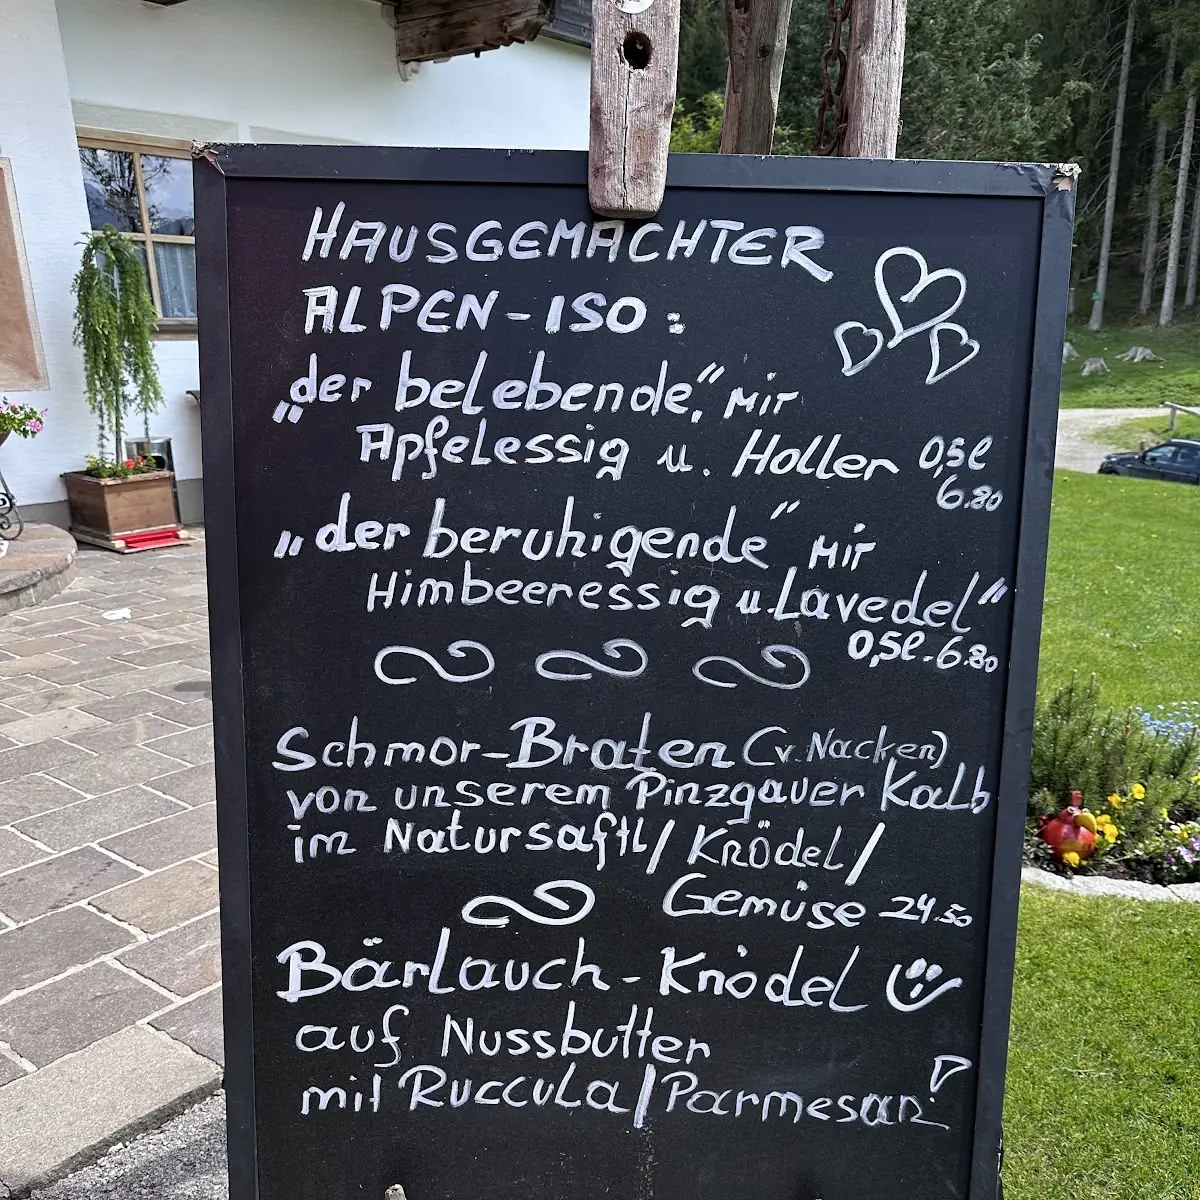 HAUSGEMACHTER
ALPEN-ISO:
„der belebende“, mit
Apfelessig u. Holler 0,5l
6.80
„der beruhigende“ mit
Himbeeressig u. Lavedel“
0,5l-6.80
Schmor-Braten (v. Nacken)
von unserem Pinzgauer Kalb
im Natursaftl/Knödel/
Gemüse 24.50
Bärlauch-Knödel
auf Nussbutter
mit Ruccula/Parmesan